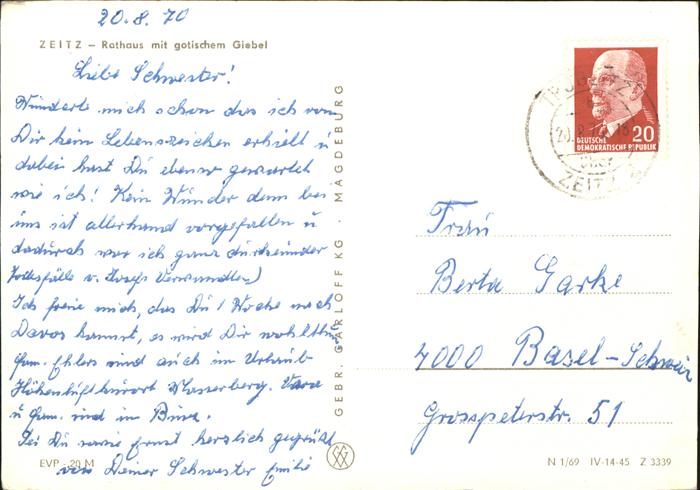 20.8.70
ZEITZ – Rathaus mit gotischem Giebel
Liebe Schwester!
Wunderte mich schon das ich von
Dir kein Lebenszeichen erhielt u
dabei hast Du ebenso gewartet
wie ich! Kein Wunder denn bei
uns ist allerhand vorgefallen u
dadurch war ich ganz durcheinander
Todesfälle v. Josefs Verwandten)
Ich freue mich, das Du 1 Woche nach
Davos kannst, es wird Dir wohlthun
Fam. Ehlers sind auch im Urlaub
Höhenluftkurort Masserberg.
u Fam. sind in
Sei Du sowie Ernst herzlich gegrüßt
von Deiner Schwester Emilie
EVP -,20 M
GEBR. GARLOFF KG · MAGDEBURG
20
DEUTSCHE
DEMOKRATISCHE REPUBLIK
20.8.70
über
ZEITZ
Frau
Berta Garke
4000 Basel-Schweiz
Grosspeterstr. 51
N 1/69 IV-14-45 Z 3339